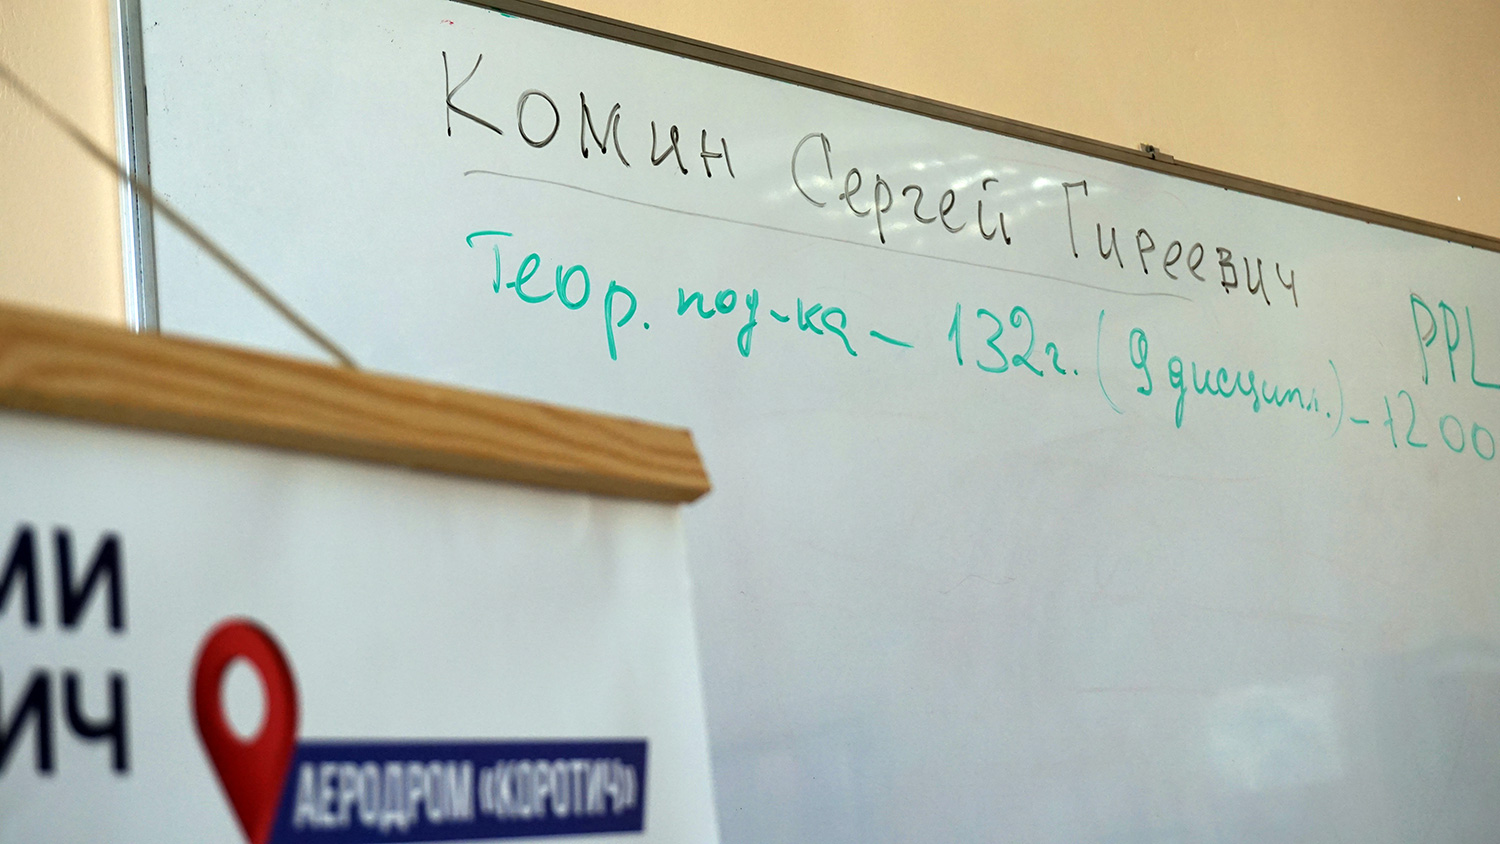 Комин Сергей Гиреевич
PPL
Теор. под-ка - 132г. (9 дисципл.) - 1200
МИ
ИЧ
АЕРОДРОМ «КОРОТИЧ»